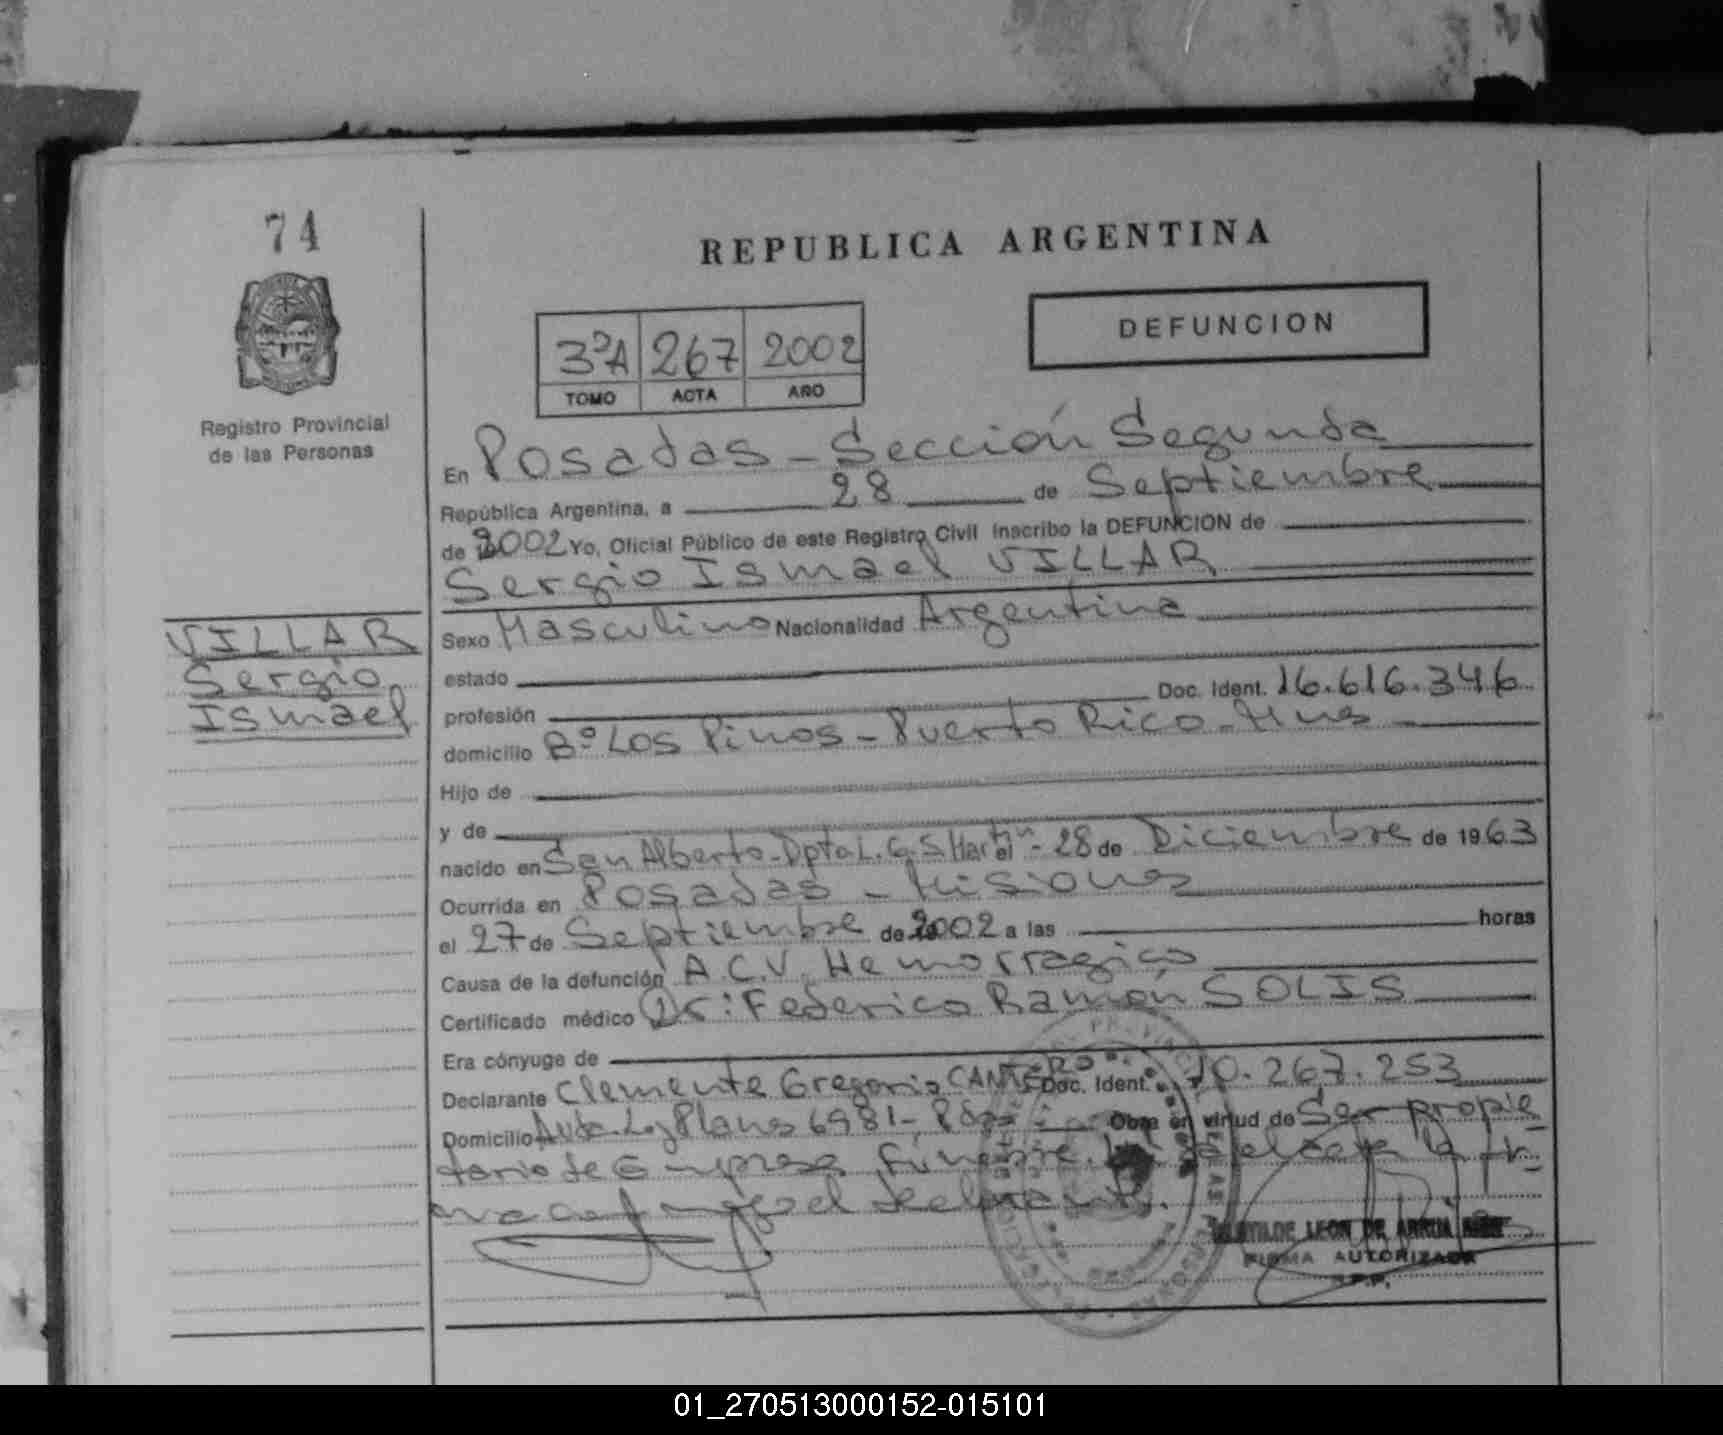 74
REPUBLICA ARGENTINA
DEFUNCION
3ºA 267 2002
TOMO ACTA AÑO
Registro Provincial
de las Personas
En Posadas - Sección Segunda
República Argentina, a 28 de Septiembre
de 2002 Yo, Oficial Público de este Registro Civil inscribo la DEFUNCION de
Sergio Ismael VILLAR
VILLAR
Sergio
Ismael
Sexo Masculino Nacionalidad Argentina
estado
profesión Doc. Ident. 16.616.346
domicilio Bº Los Pinos - Puerto Rico - Mnes
Hijo de
y de
nacido en San Alberto - Dpto L. G. S. Martín - 28 de Diciembre de 1963
Ocurrida en Posadas - Misiones
el 27 de Septiembre de 2002 a las horas
Causa de la defunción A.C.V. Hemorragico
Certificado médico Dr: Federico Ramón SOLIS
Era cónyuge de
Declarante Clemente Gregorio CANTERO Doc. Ident. 10.267.253
Domicilio Avda. Ls Planes 6981 - Pdas Obra en virtud de Ser propie
tario de Empresa Fúnebre. Leida el acta la fir
ma el declarante.
LEON DE ARRUA
FIRMA AUTORIZADA
R.P.P.
01_270513000152-015101